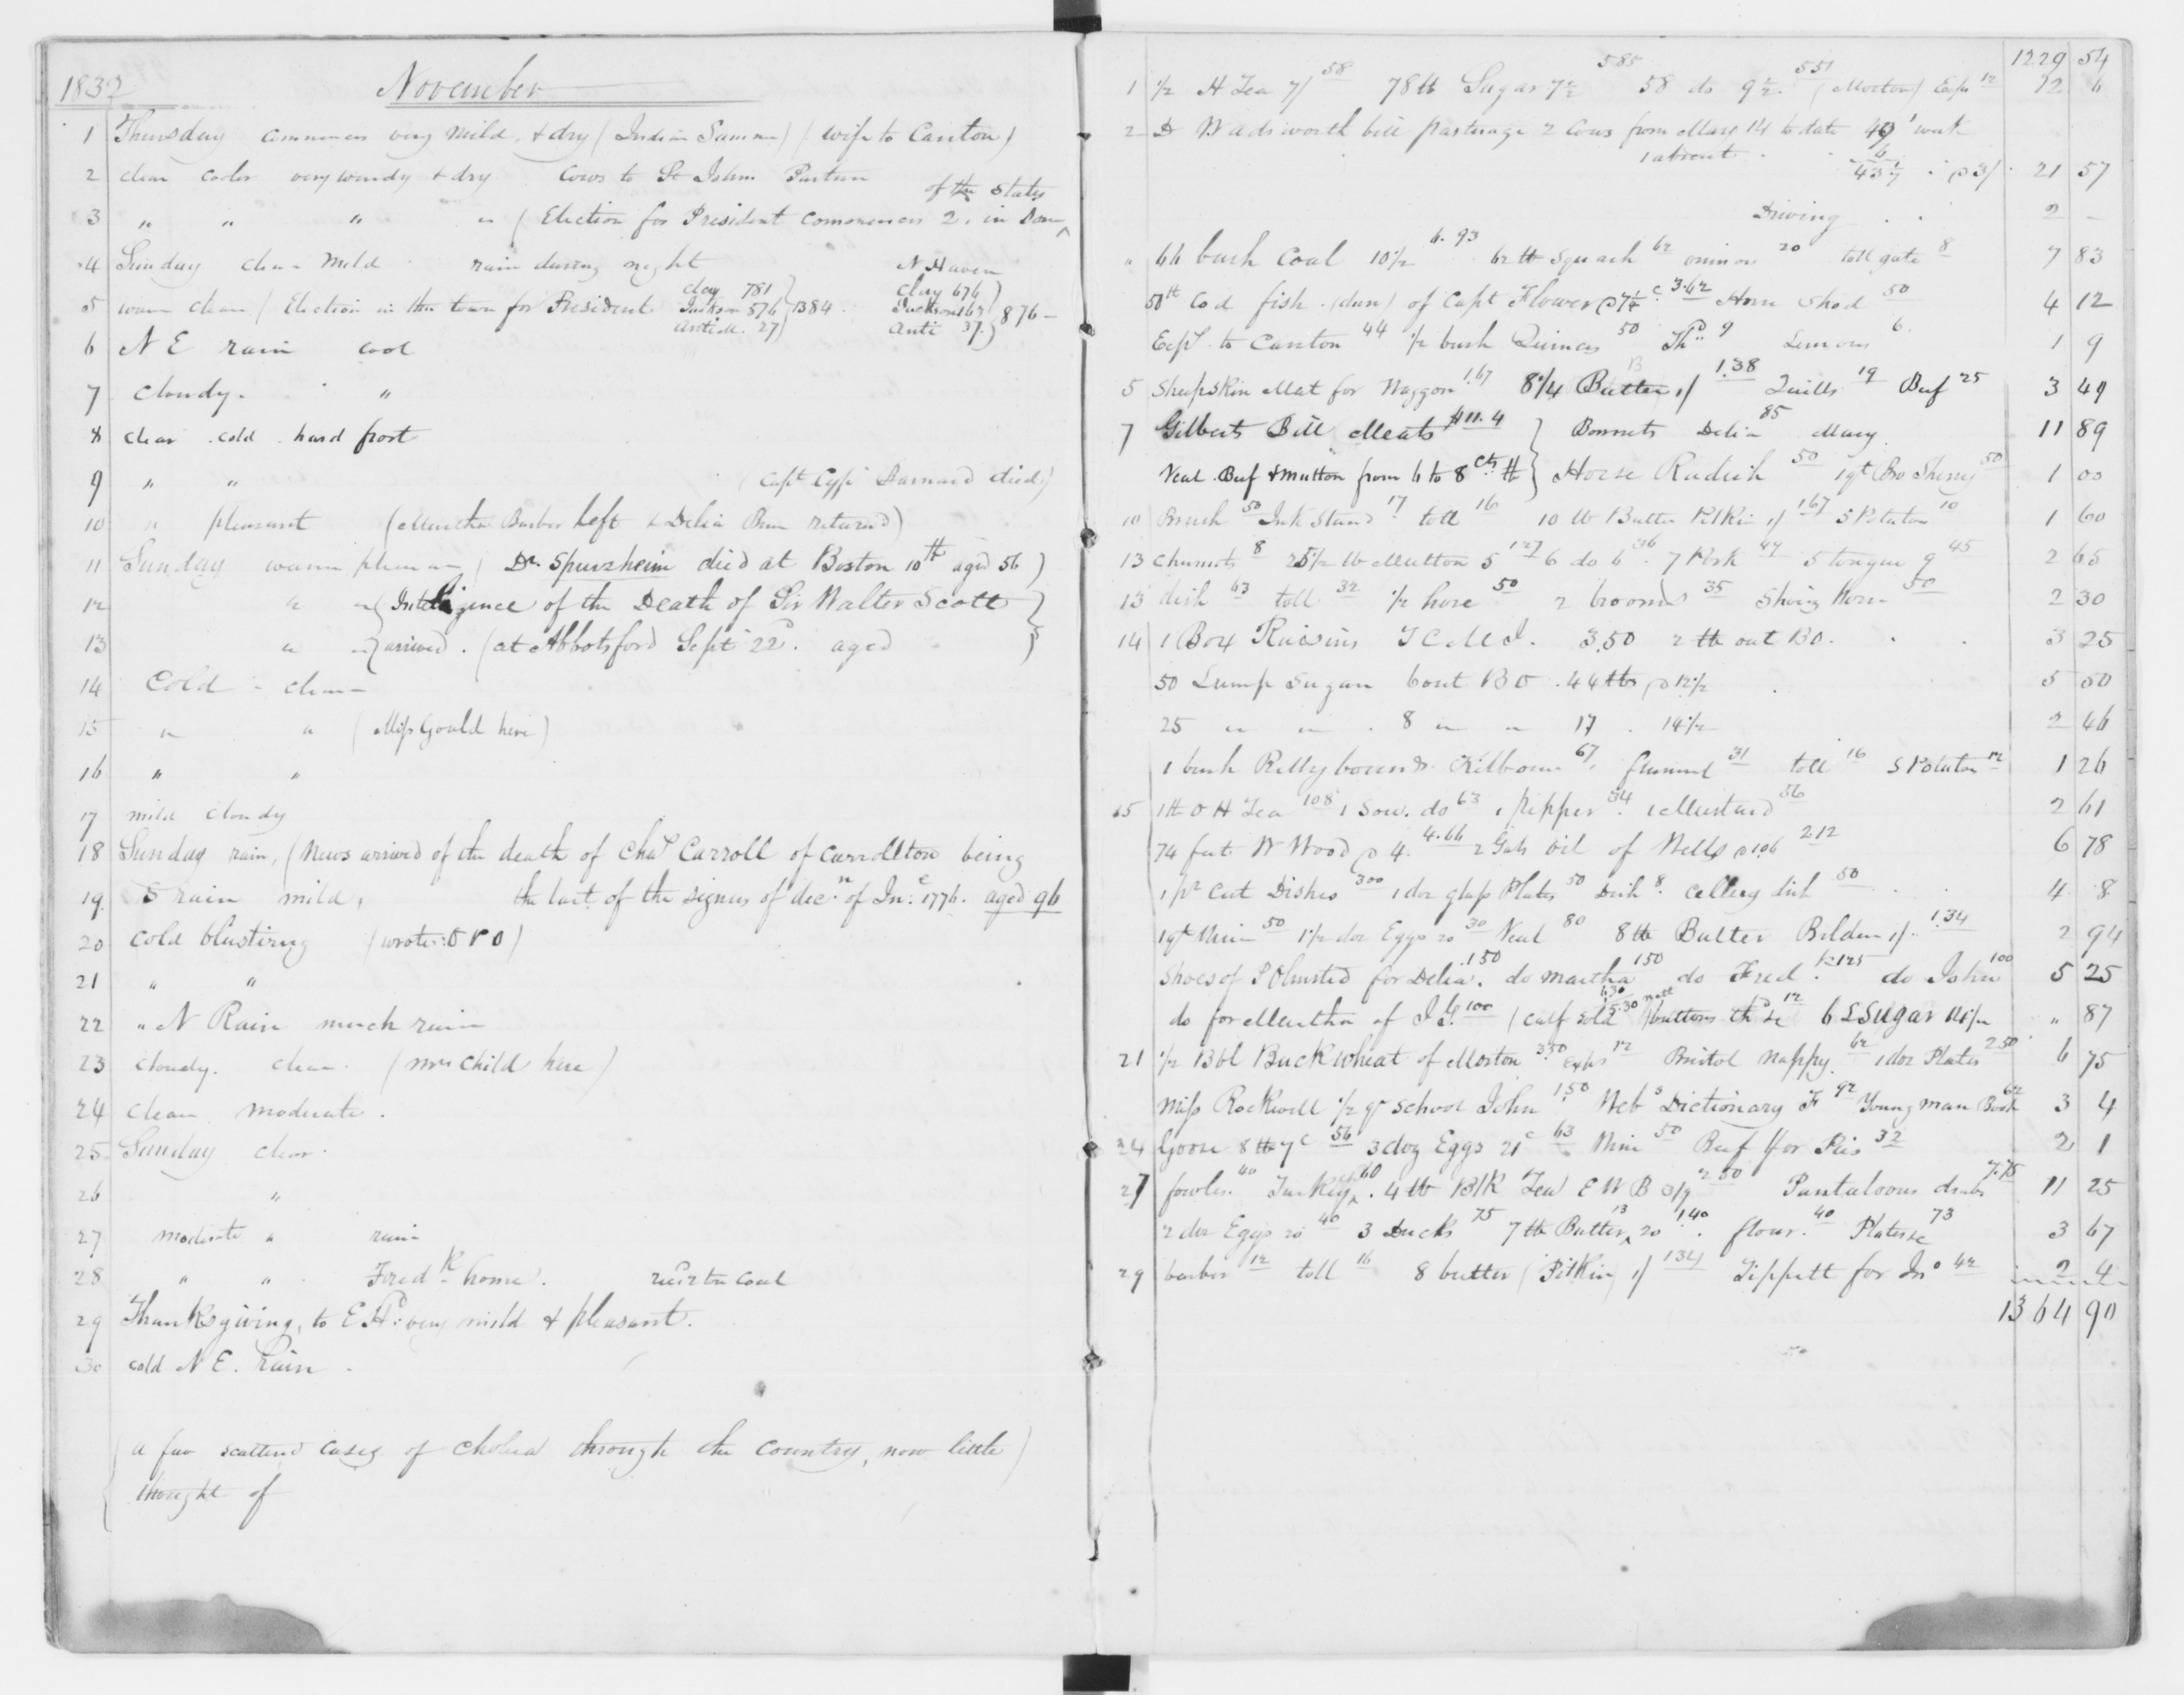 1832 November
1 Thursday commences very mild & dry (Indian Summer) (wife to Canton)
2 clear cooler very windy & dry Cows to St John Pasture
of the States
3 " " " " (Election for President commences 2. in Some
4 Sunday clear mild rain during night N Haven
5 warm clear (Election in this town for President Clay 781 Jackson 576 Anti M. 27 } 1384 Clay 676 Jackson 163 Anti 37 } 876 –
6 N E rain cool
7 cloudy. "
8 clear cold hard frost
9 " " (Capt Cyps Barnard died)
10 " pleasant (Martha Barber left & Delia returned)
11 Sunday warm pleasant (Dr. Spurzheim died at Boston 10th aged 56)
12 " " { Intelligence of the Death of Sir Walter Scott }
13 " " { arrived. (at Abbotsford Sept 22d. aged )
14 Cold - clear
15 " " (Miss Gould here)
16 " "
17 mild cloudy
18 Sunday rain, (News arrived of the death of Chas Carroll of Carrollton being
19 S rain mild, the last of the signers of decn. of Ine. 1776. aged 96
20 Cold blustering (wrote O P O)
21 " "
22 " N Rain much rain
23 cloudy. clear. (Mrs Child here)
24 clear moderate.
25 Sunday clear.
26 "
27 moderate " rain
28 " " Fredk home. recd ton coal
29 Thanksgiving, to E Hd: very mild & pleasant.
30 cold N E. Rain
(a few scattered cases of cholera through the country, now little)
thought of
1229 54
1 1/2 H Tea 7/ 58 78 lb Sugar 7 1/2 585 58 do 9 1/2. 551 (Morton) Exps 12 12 6
2 D Wadsworth bill pasturage 2 Cows from May 14 to date 49 1 week
1 absent 6
43 1/7 @ 3/ 21 57
Driving . . 2 –
" 66 bush Coal 10 1/2 6.93 62 lb Squash 62 onions 20 toll gate 8 7 83
50 lb Cod fish (dun) of Capt Flower @ 7 1/4 c 3.62 Horse Shod 50 4 12
Exps. to Canton 44 1/2 bush Quinces 50 Thd 9 Lemons 6 1 9
5 Sheepskin Mat for Waggon 1.67 8 1/4 Butter 1/ 1.38 Quills 19 Beef 25 3 49
7 Gilberts Bill Meats $11.4 } Bonnets Delia 85 Mary 11 89
Veal Beef & Mutton from 6 to 8 cts lb } Horse Radish 50 1 qt Bro Sherry 50 1 00
10 Brush 50 Ink Stand 17 toll 16 10 lb Butter Pitkin 1/ 167 S Potatoes 10 1 60
13 Chesnuts 8 25 1/2 lb Mutton 5 127 6 do 6 36 7 Pork 49 5 tongue 9 45 2 65
13 dish 63 toll 32 1/2 hose 50 2 brooms 35 Shoeing Horse 50 2 30
14 1 Box Raisins 3.50 2 lb out BO. . . 3 25
50 Lump Sugar 6 out BO . 44 lbs @ 12 1/2 5 50
25 " " . 8 " " 17 . 14 1/2 2 46
1 bush Kilbourn 67 31 toll 16 S Potatoes 12 1 26
15 1 lb O H Tea 108 1 Sou. do 63 1 Pepper 34 1 Mustard 56 2 61
74 feet W Wood @ 4. 4.66 2 Gals oil of Wells @ 106 212 6 78
1 pr Cut Dishes 300 1 doz glass Plates 50 Dish 8 Cellery dish 50 4 8
1 qt Wine 50 1 1/2 doz Eggs 20 30 Veal 80 8 lb Butter Belden 1/ 1.34 2 94
Shoes of P Olmsted for Delia 150 do Martha 150 do Fred 125 do John 100 5 25
do for Martha of 100 (calf sold 5.30 buttons thd &c 12 6 L Sugar " 87
21 1/2 Bbl Buckwheat of Morton 350 Exps 12 Bristol Nappy 62 1 doz Plates 250 6 75
Miss Rockwell 1/2 qr School John 150 Webs Dictionary F 92 Young man Book 62 3 4
24 Goose 8 lb 7c 56 3 doz Eggs 21c 63 Wine 50 Beef for Pies 32 2 1
27 fowls 40 Turkey 60 4 lb Blk Tea E W B 3/9 2.50 Pantaloons drab 7.75 11 25
2 doz Eggs 20 40 3 Ducks 75 7 lb Butter 20 1.40 flour. 40 Plates &c 73 3 67
29 barber 12 toll 16 8 butter (Pitkin) 1/ 134 Tippett for Jno 42 2 4
1364 90